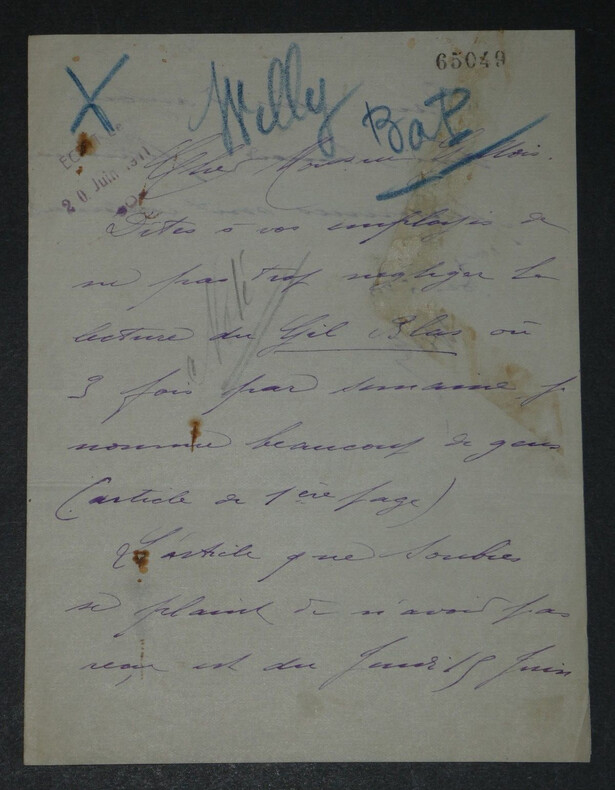 65049
X Willy BoP
20 Juin 1911
Cher Monsieur
Dites à vos employés de
ne pas trop negliger la
lecture du Gil Blas où
3 fois par semaine je
nomme beaucoup de gens
Noté
(article de 1ère page)
L'article que
se plaint de n'avoir pas
reçu est du Jeudi 15 Juin